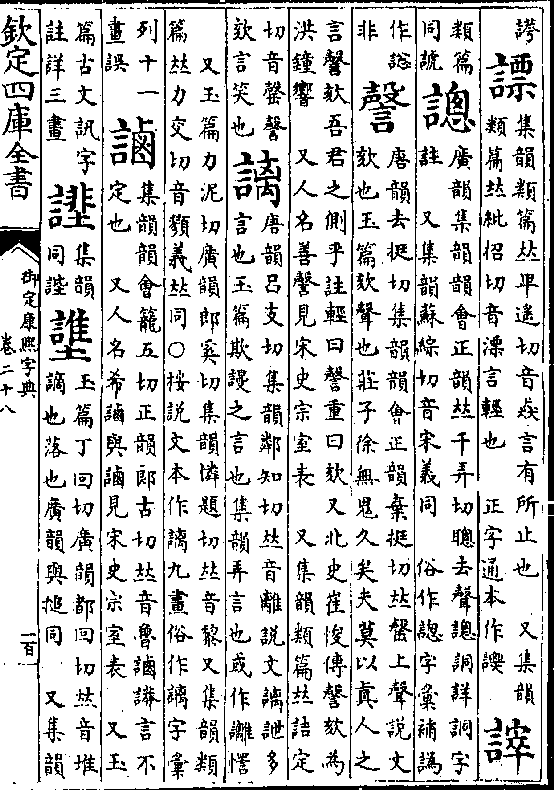 謗
謤
集韻類篇𠀤卑遙切音猋言有所止也 又集韻
類篇𠀤紕招切音漂言輕也 正字通本作
類篇
同
謥
廣韻集韻韻會正韻𠀤千弄切聰去聲謥詷詳詷字
註 又集韻蘇綜切音宋義同 俗作謥字彙補譌
作謚
非
謦
唐韻去挺切集韻韻會正韻棄挺切𠀤罄上聲說文
欬也玉篇欬聲也莊子徐無鬼久矣夫莫以眞人之
言謦欬吾君之側乎註輕曰謦重曰欬 又北史崔㥄傳謦欬為
洪鐘響 又人名善謦見宋史宗室表 又集韻類篇𠀤詰定
切音罄謦
欬言笑也
謧
唐韻呂支切集韻鄰知切𠀤音離說文謧詍多
言也玉篇欺謾之言也集韻弄言也或作讈㦒
又玉篇力泥切廣韻郎奚切集韻憐題切𠀤音黎又集韻類
篇𠀤力交切音顟義𠀤同○按說文本作謧九畫俗作謧字彙
列十一
畫誤
集韻韻會籠五切正韻郎古切𠀤音魯言不
定也 又人名希與見宋史宗室表 又玉
篇古文訊字
註詳三畫
集韻
同
玉篇丁回切廣韻都回切𠀤音堆
謫也落也廣韻與搥同 又集韻
欽定四庫全書
御定康熙字典
卷二十八
一百